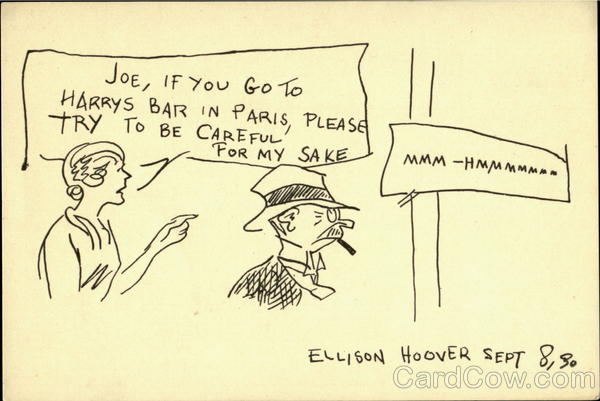 JOE, IF YOU GO TO
HARRYS BAR IN PARIS, PLEASE
TRY TO BE CAREFUL
FOR MY SAKE
MMM-HMMMMMMM
ELLISON HOOVER SEPT 8, 30
CardCow.com